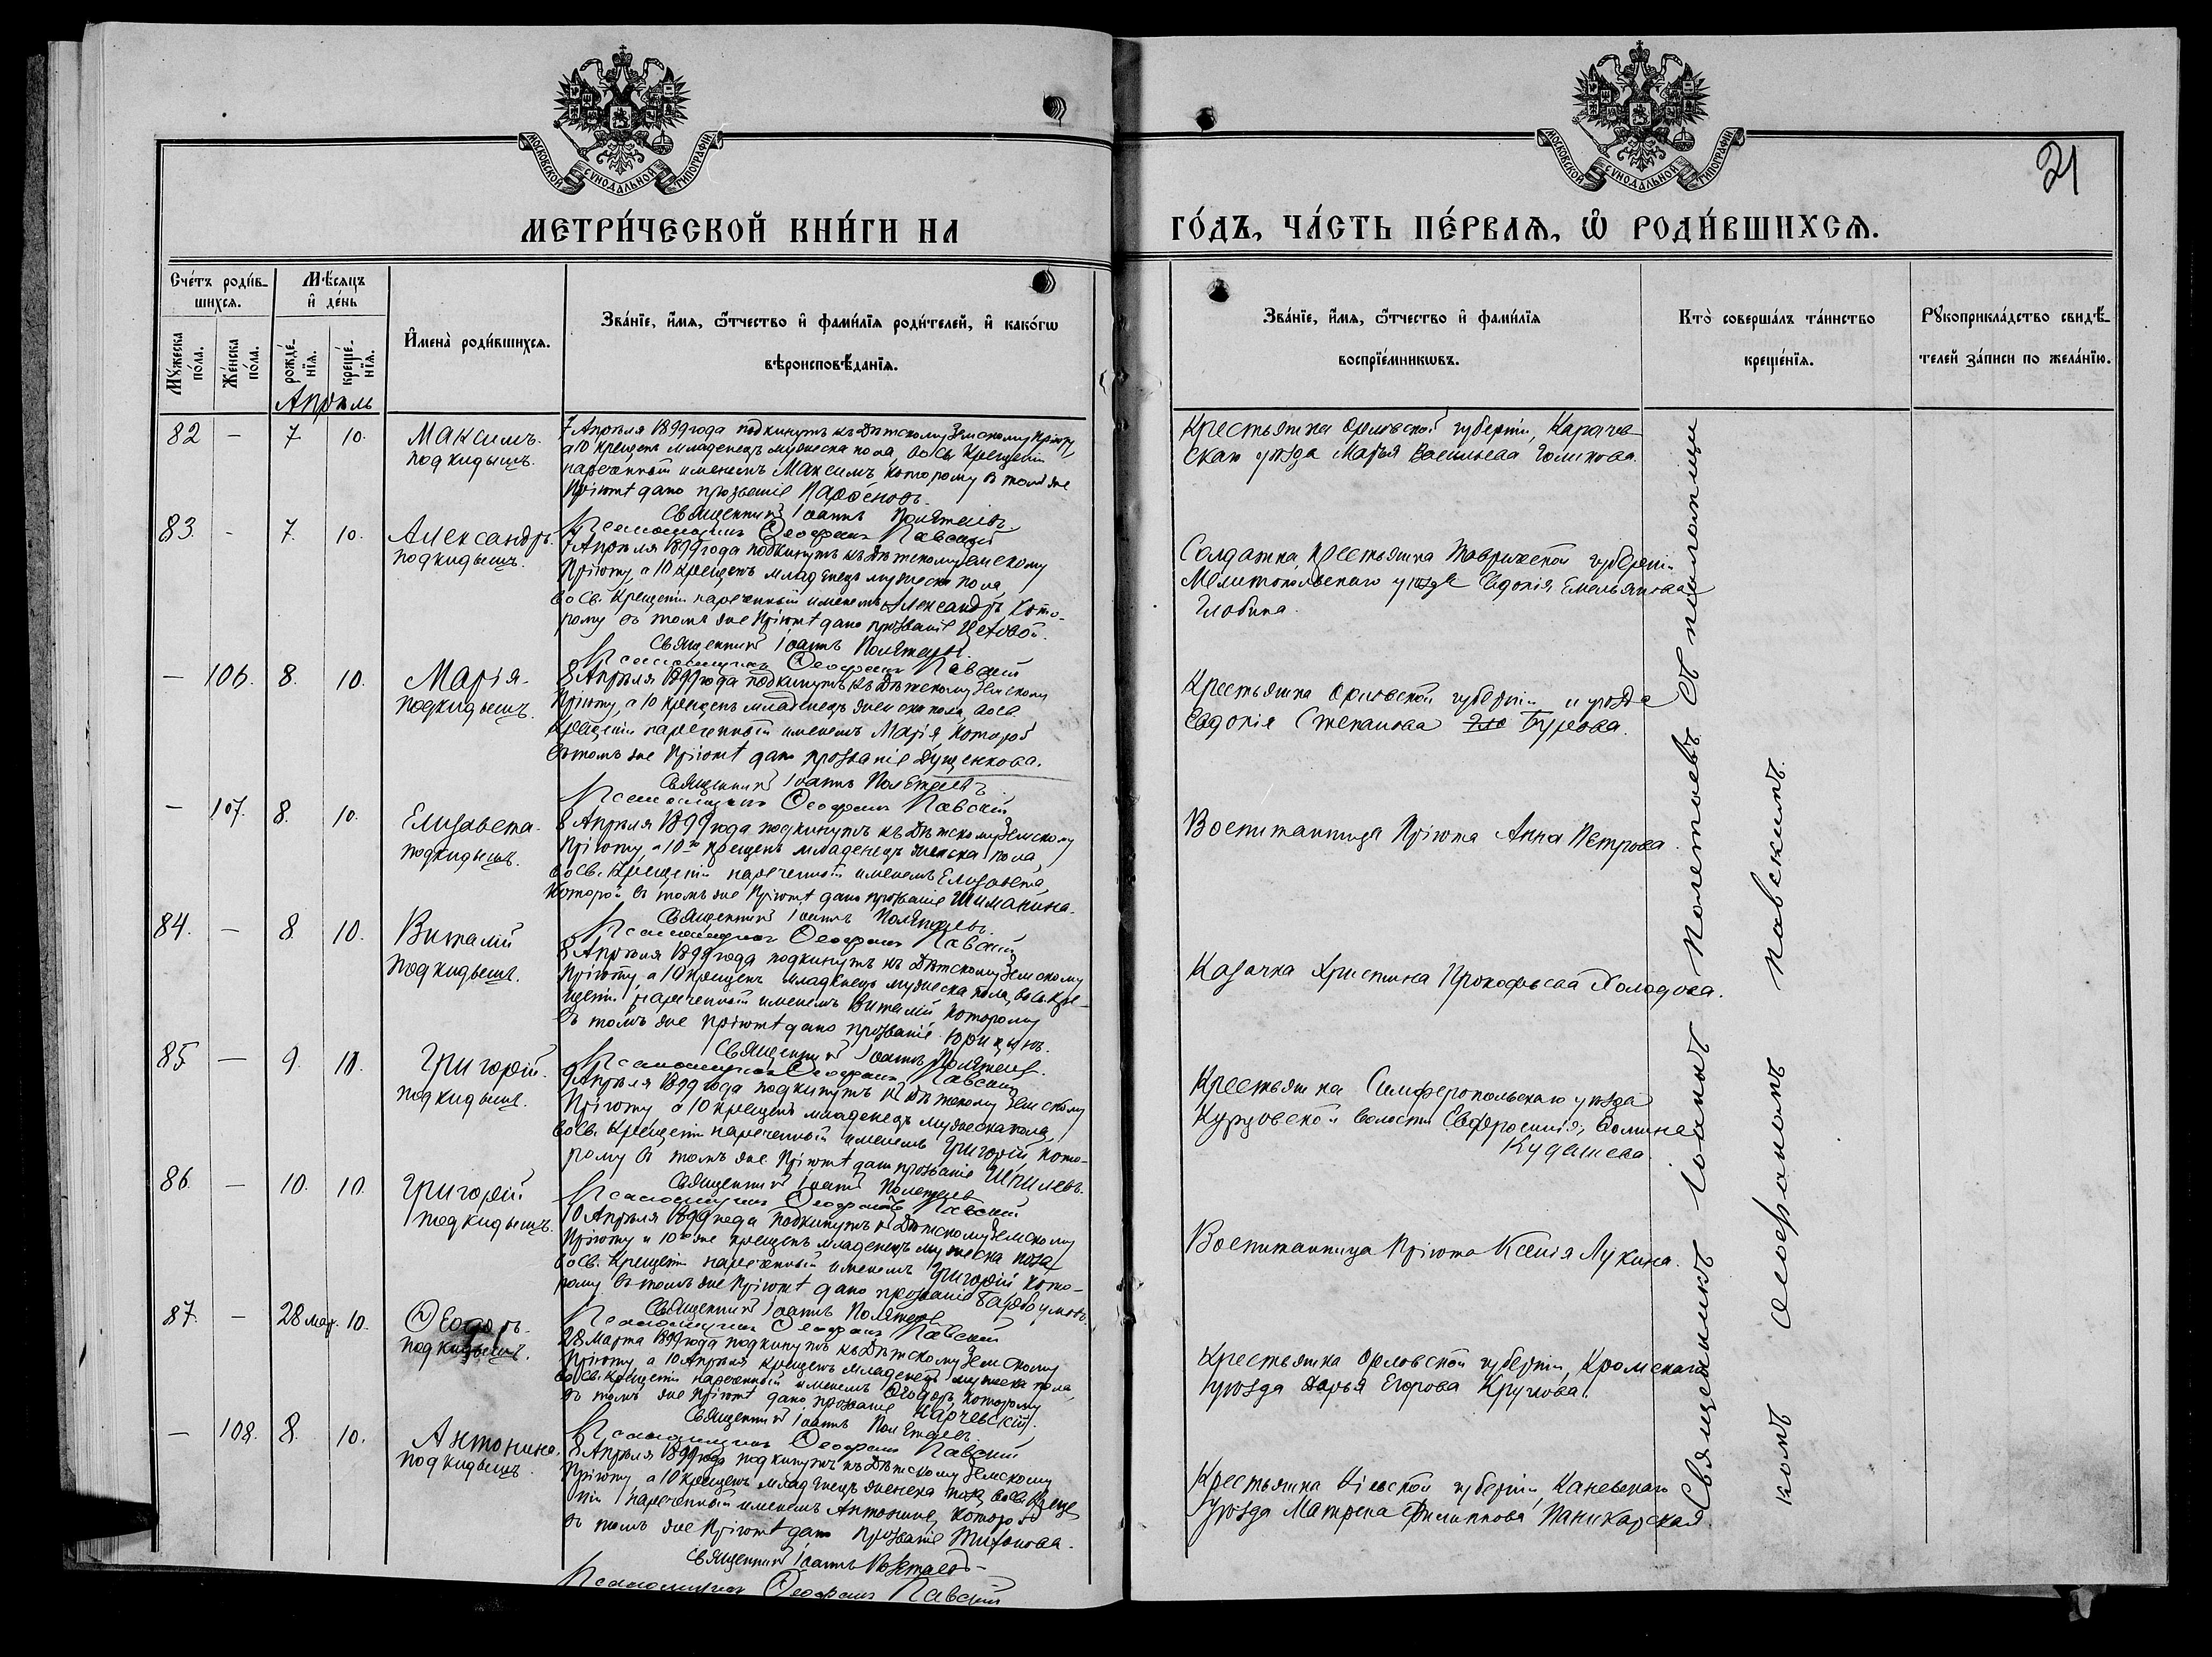 МОСКОВСКОЙ СѴНОДАЛЬНОЙ ТИПОГРАФІИ
МОСКОВСКОЙ СѴНОДАЛЬНОЙ ТИПОГРАФІИ
21
МЕТРИ́ЧЕСКОЙ КНИ́ГИ НА ГО́ДЪ, ЧА́СТЬ ПЕ́РВАЯ, Ѡ РОДИ́ВШИХСЯ.
Сче́тъ роди́в-
шихся.
Му́жеска по́ла.
Же́нска по́ла.
Мѣ́сяцъ
и де́нь
рожде́-
нїя.
креще́-
нїя.
Имена̀ роди́вшихся.
Зва́нїе, и́мя, ѻ́тчество и фами́лїя роди́телей, и како́гѡ
вѣроисповѣ́данїя.
Зва́нїе, и́мя, ѻ́тчество и фами́лїя
воспрїе́мникѡвъ.
Кто̀ соверша́лъ та́инство
креще́нїя.
Рꙋкоприкла́дство свидѣ́-
телей за́писи по жела́нїю.
Апрѣль
82 - 7 10.
Максимъ.
подкидышъ.
7 Апрѣля 1899 года подкинутъ къ Дѣтскому Земскому Пріюту,
а 10 крещенъ младенецъ мужеска пола, во Св. Крещеніи
нареченный именемъ Максимъ которому въ томъ же
Пріютѣ дано прозваніе Парѳеновъ.
Священникъ Іоаннъ Полетаевъ
Псаломщикъ Ѳеофанъ Павскій
Крестьянка Орловской губерніи, Карачев-
скаго уѣзда Марья Васильева Голикова.
83. - 7. 10.
Александръ.
подкидышъ.
7 Апрѣля 1899 года подкинутъ къ Дѣтскому Земскому
Пріюту, а 10 крещенъ младенецъ мужеска пола,
во Св. Крещеніи нареченный именемъ Александръ кото-
рому въ томъ же Пріютѣ дано прозваніе
Священникъ Іоаннъ Полетаевъ
Псаломщикъ Ѳеофанъ Павскій
Солдатка, крестьянка Таврической губерніи
Мелитопольскаго уѣзда Евдокія Емельянова
Глобина.
- 106. 8. 10.
Марія.
подкидышъ.
8 Апрѣля 1899 года подкинутъ къ Дѣтскому Земскому
Пріюту, а 10 крещенъ младенецъ женска пола, во Св.
Крещеніи нареченный именемъ Марія которой
въ томъ же Пріютѣ дано прозваніе Дущенкова.
Священникъ Іоаннъ Полетаевъ
Псаломщикъ Ѳеофанъ Павскій
Крестьянка Орловской губерніи и уѣзда
Евдокія Степанова Бурова.
- 107. 8. 10.
Елизавета.
подкидышъ.
8 Апрѣля 1899 года подкинутъ къ Дѣтскому Земскому
Пріюту, а 10 крещенъ младенецъ женска пола,
во Св. Крещеніи нареченный именемъ Елизавета,
которой въ томъ же Пріютѣ дано прозваніе Шиманина.
Священникъ Іоаннъ Полетаевъ.
Псаломщикъ Ѳеофанъ Павскій
Воспитанница Пріюта Анна Петрова.
84. - 8 10.
Виталій
подкидышъ.
8 Апрѣля 1899 года подкинутъ къ Дѣтскому Земскому
Пріюту а 10 крещенъ младенецъ мужеска пола, во Св. Кре-
щеніи нареченный именемъ Виталій которому
въ томъ же Пріютѣ дано прозваніе Юрицынъ.
Священникъ Іоаннъ Полетаевъ.
Псаломщикъ Ѳеофанъ Павскій
Казачка Христина Прокофьева Холодова.
85 - 9. 10.
Григорій.
подкидышъ.
9 Апрѣля 1899 года подкинутъ къ Дѣтскому Земскому
Пріюту, а 10 крещенъ младенецъ мужеска пола,
во Св. Крещеніи нареченный именемъ Григорій кото-
рому въ томъ же Пріютѣ дано прозваніе Шпилевъ.
Священникъ Іоаннъ Полетаевъ
Псаломщикъ Ѳеофанъ Павскій
Крестьянка Симферопольскаго уѣзда
волости Евфросинія Ѳомина
Кудашева.
86. - 10. 10.
Григорій
подкидышъ.
10 Апрѣля 1899 года подкинутъ къ Дѣтскому Земскому
Пріюту и 10го же крещенъ младенецъ мужеска пола,
во Св. Крещеніи нареченный именемъ Григорій кото-
рому въ томъ же Пріютѣ дано прозваніе
Священникъ Іоаннъ Полетаевъ
Псаломщикъ Ѳеофанъ Павскій
Воспитанница Пріюта Ксенія Лукина.
87. - 28 мар. 10.
Ѳеодоръ.
подкидышъ.
28 Марта 1899 года подкинутъ къ Дѣтскому Земскому
Пріюту, а 10 Апрѣля крещенъ младенецъ мужеска пола,
во Св. Крещеніи нареченный именемъ Ѳеодоръ, которому
въ томъ же Пріютѣ дано прозваніе Карчевскій.
Священникъ Іоаннъ Полетаевъ.
Псаломщикъ Ѳеофанъ Павскій
Крестьянка Орловской губерніи, Кромскаго
уѣзда Дарья Егорова Круглова.
- 108. 8. 10.
Антонина.
подкидышъ.
8 Апрѣля 1899 года подкинутъ къ Дѣтскому Земскому
Пріюту, а 10 крещенъ младенецъ женска пола, во Св. Креще-
ніи нареченный именемъ Антонина, которой
въ томъ же Пріютѣ дано прозваніе Тихонова.
Священникъ Іоаннъ Полетаевъ
Псаломщикъ Ѳеофанъ Павскій
Крестьянка Кіевской губерніи, Каневскаго
уѣзда Матрена Филиппова Паникарская
Священникъ Іоаннъ Полетаевъ съ псаломщи-
комъ Ѳеофаномъ Павскимъ.